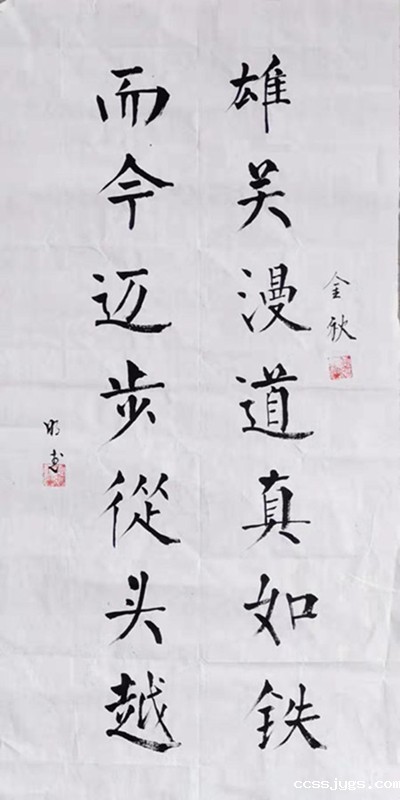 金秋
雄关漫道真如鉄
而今迈步從头越
明书
ccssjygs.com